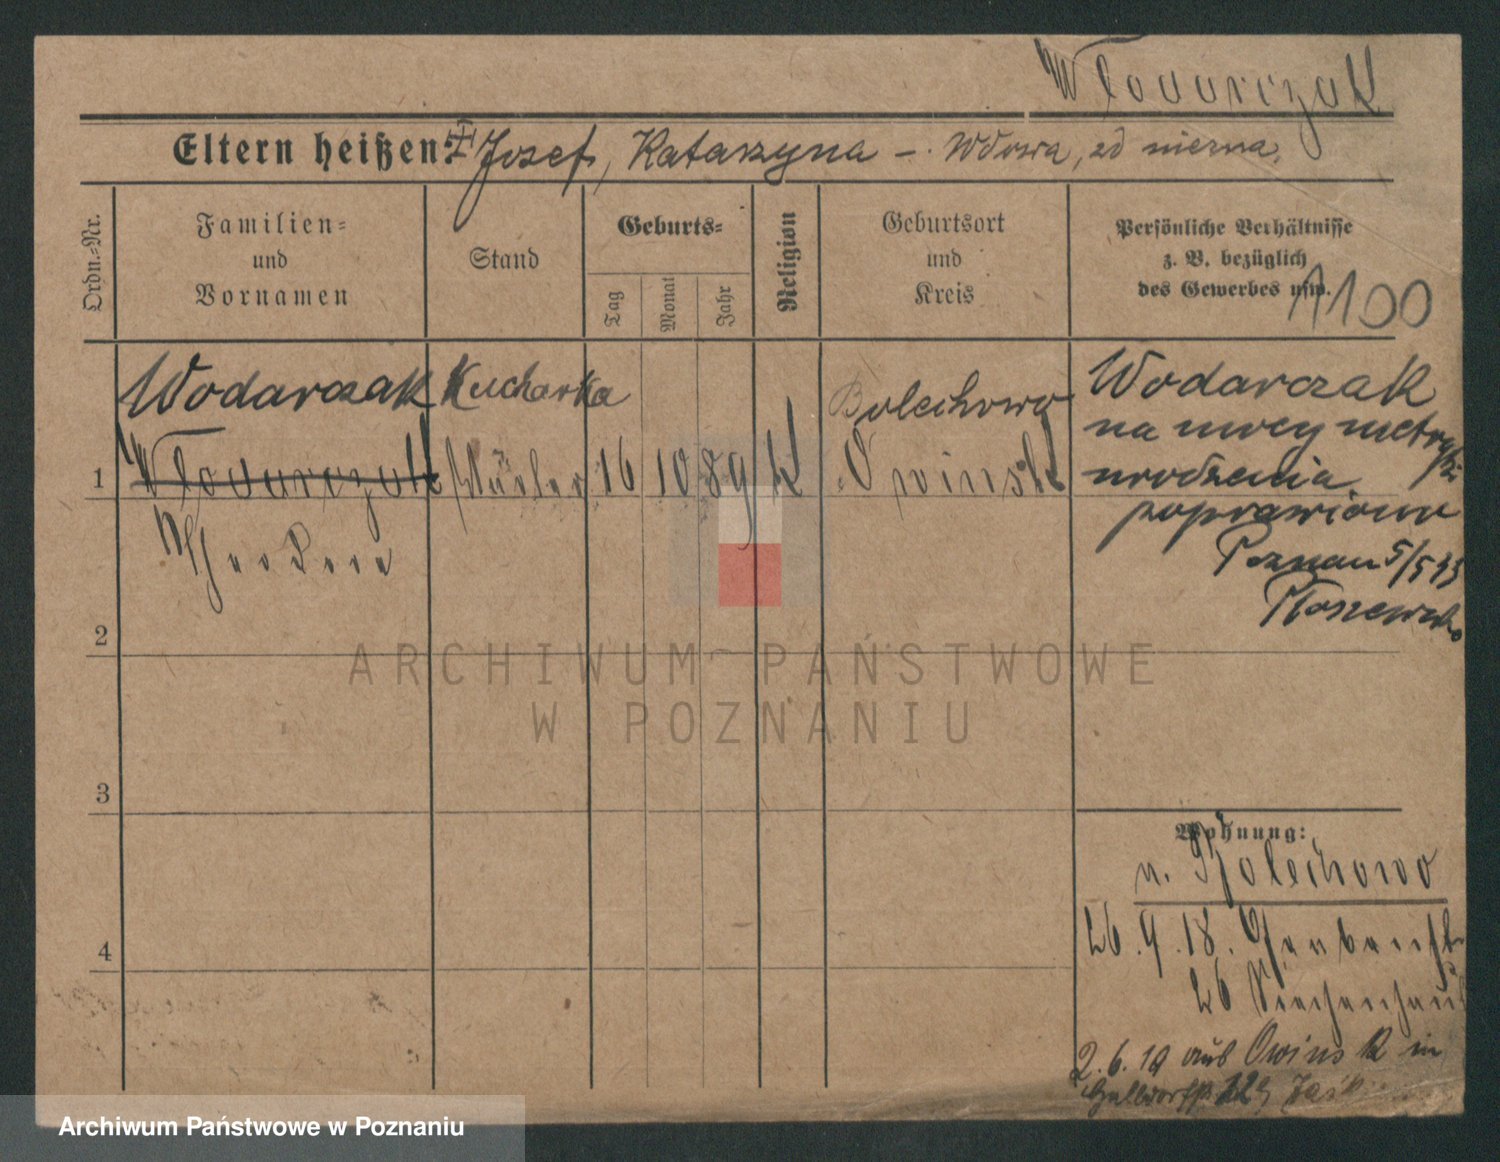 Włodarczak
Eltern heißen: Josef, Katarzyna – Wdowa,
Ordn.-Nr.
Familien-
und
Vornamen
Stand
Geburts-
Tag
Monat
Jahr
Religion
Geburtsort
und
Kreis
Persönliche Verhältnisse
z. B. bezüglich
des Gewerbes usw.
1100
Wodarczak Kucharka Bolechowo
1 Włodarczak 16 10 89 K Owinsk
Wodarczak
na mocy metryki
urodzenia
poprawiono
Poznań 5/5 33
2
3
4
Wohnung:
n. Bolechowo
26.9.18.
26 Siechenhaus
2.6.19 aus Owinsk in
ARCHIWUM PAŃSTWOWE
W POZNANIU
Archiwum Państwowe w Poznaniu